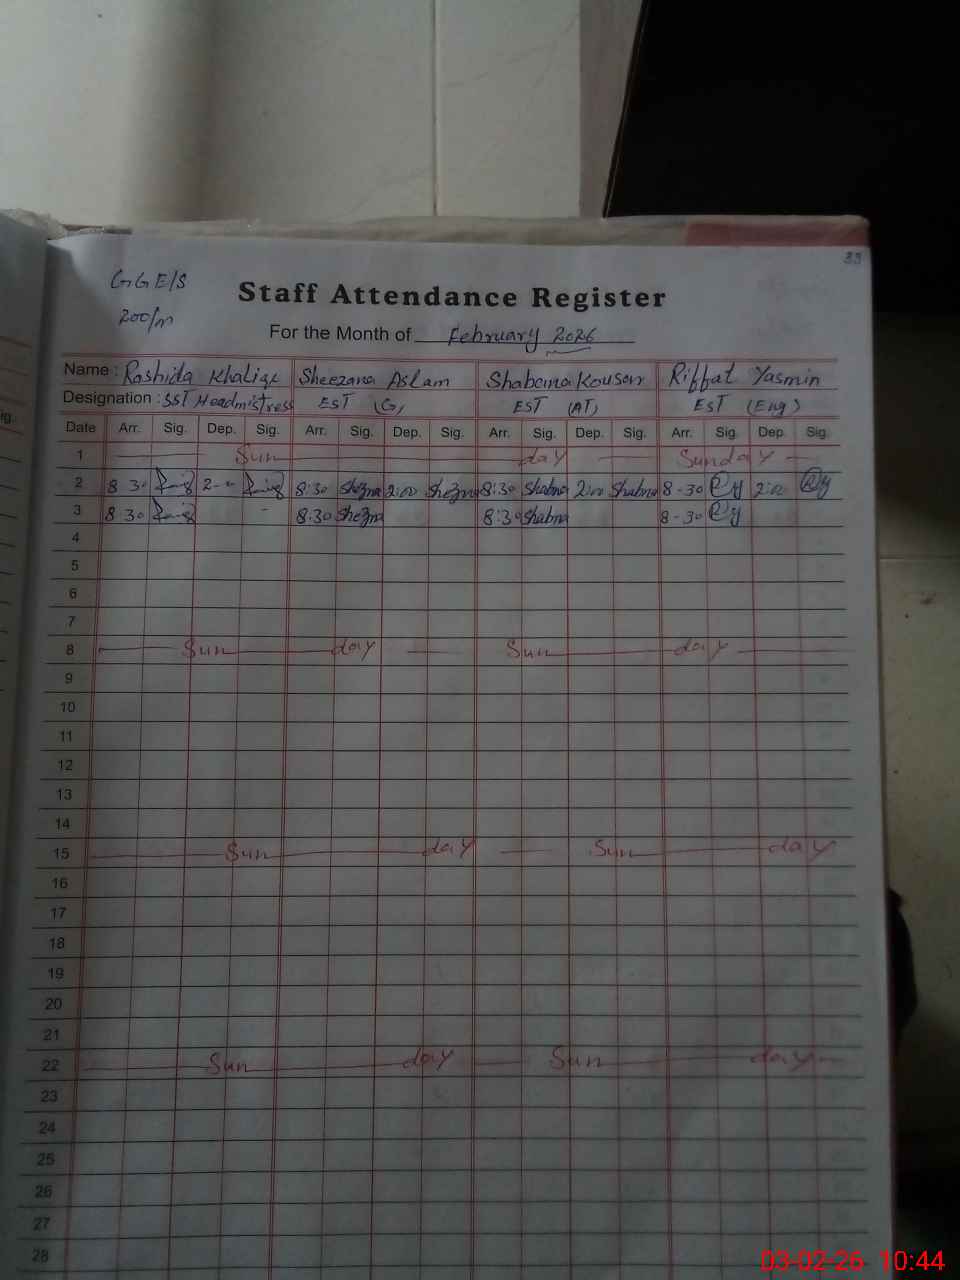 33
GGE/S
200/m
Staff Attendance Register
For the Month of February 2026
Name : Rashida Khaliq Sheezana Aslam Shabana Kouser Riffat Yasmin
Designation : SST Headmistress EST (G) EST (AT) EST (Eng)
ig.
Date Arr. Sig. Dep. Sig. Arr. Sig. Dep. Sig. Arr. Sig. Dep. Sig. Arr. Sig. Dep. Sig.
1 Sun day Sunday
2 8 30 2-- 8:30 2:00 8:30 Shabna 2:00 Shabna 8-30 2:00
3 8 30 8:30 8:30 Shabna 8-30
4
5
6
7
8 Sun day Sun day
9
10
11
12
13
14
15 Sun day Sun day
16
17
18
19
20
21
22 Sun day Sun day
23
24
25
26
27
28
03-02-26 10:44